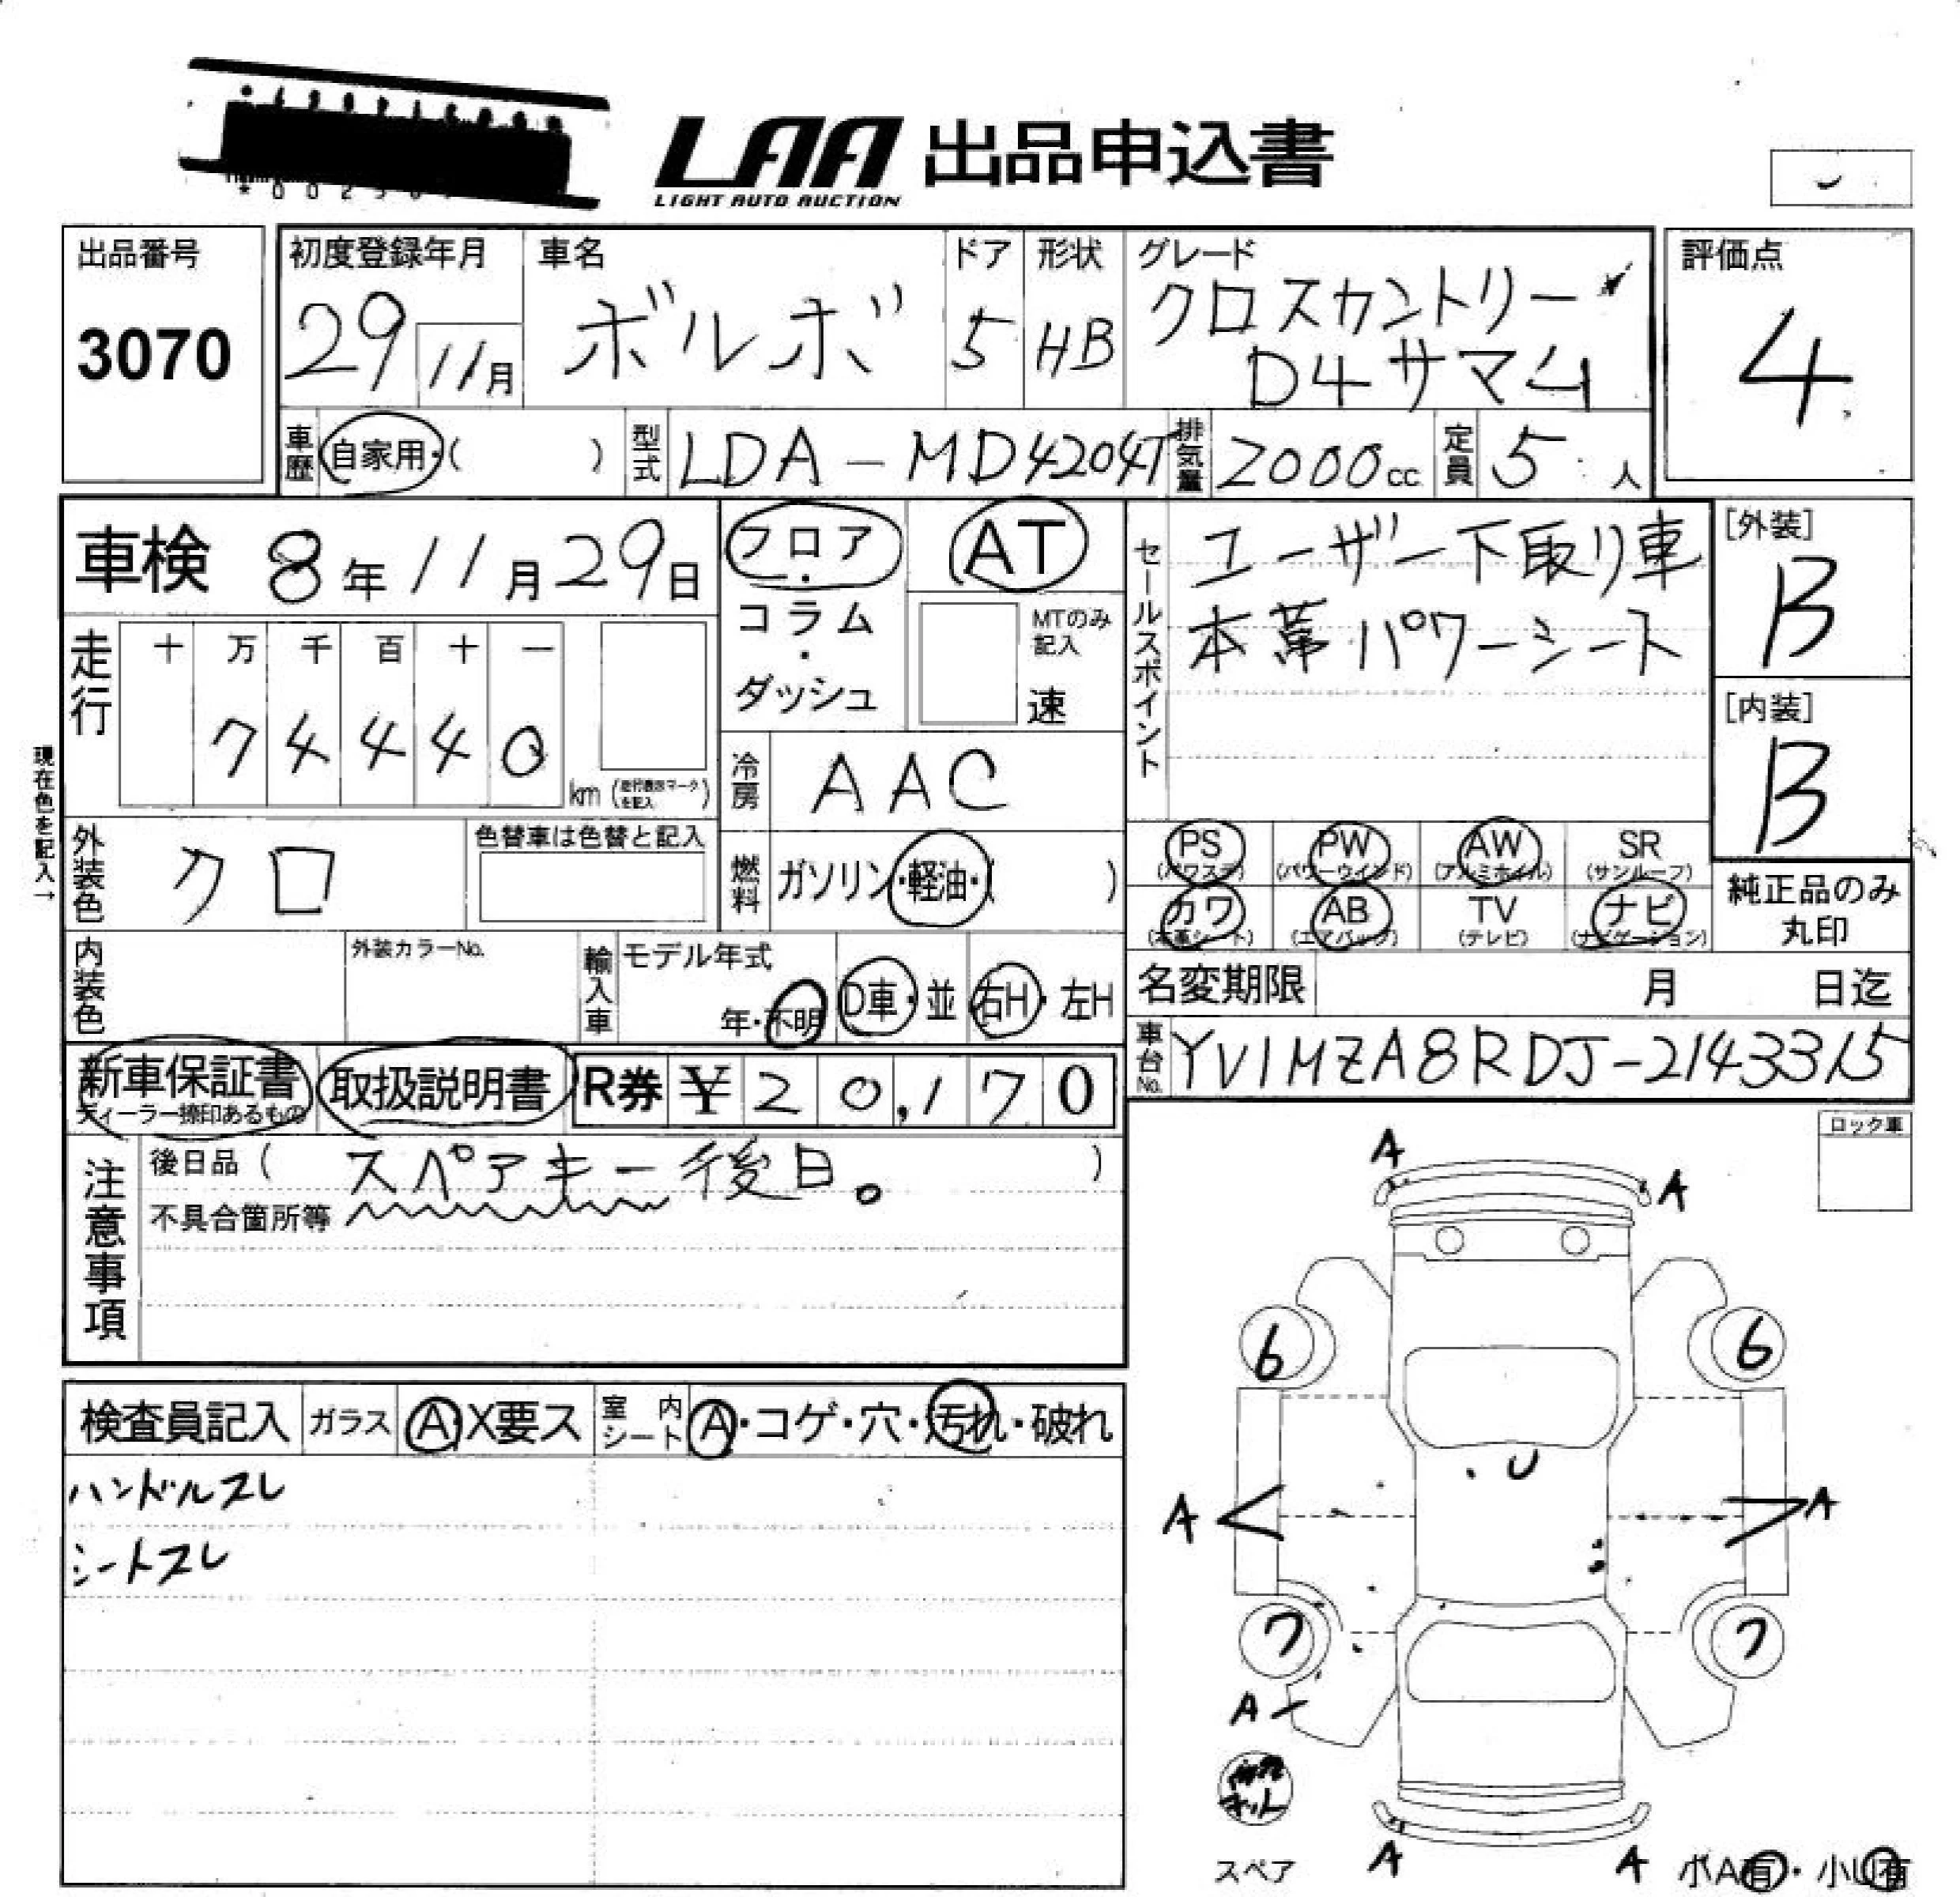 LAA 出品申込書
LIGHT AUTO AUCTION
出品番号
3070
初度登録年月
29
11月
車名
ボルボ
ドア
5
形状
HB
グレード
クロスカントリー
D4サマム
評価点
4
車歴
自家用・( )
型式
LDA-MD4204T
排気量
2000cc
定員
5人
車検 8年11月29日
走行
十 万 千 百 十 一
7 4 4 4 0
km(走行表示マークを記入)
フロア
・
コラム
・
ダッシュ
AT
MTのみ
記入
速
冷房
AAC
セールスポイント
ユーザー下取り車
本革パワーシート
[外装]
B
[内装]
B
現在色を記入→
外装色
クロ
色替車は色替と記入
燃料
ガソリン・軽油・( )
PS
(パワステ)
PW
(パワーウインド)
AW
(アルミホイル)
SR
(サンルーフ)
カワ
(本革シート)
AB
(エアバッグ)
TV
(テレビ)
ナビ
(ナビゲーション)
純正品のみ
丸印
内装色
外装カラーNo.
輸入車
モデル年式
年・不明
D車・並
右H・左H
名変期限 月 日迄
車台No.
YV1MZA8RDJ-2143315
新車保証書
ディーラー捺印あるもの
取扱説明書
R券 ¥20,170
注意事項
後日品( スペアキー後日。 )
不具合箇所等
ロック車
検査員記入
ガラス
A・X要ス
室内シート
A・コゲ・穴・汚れ・破れ
ハンドルスレ
シートスレ
A
A
6
6
U
A
A
7
7
A
キット
スペア
A
A
ボA有・小U有